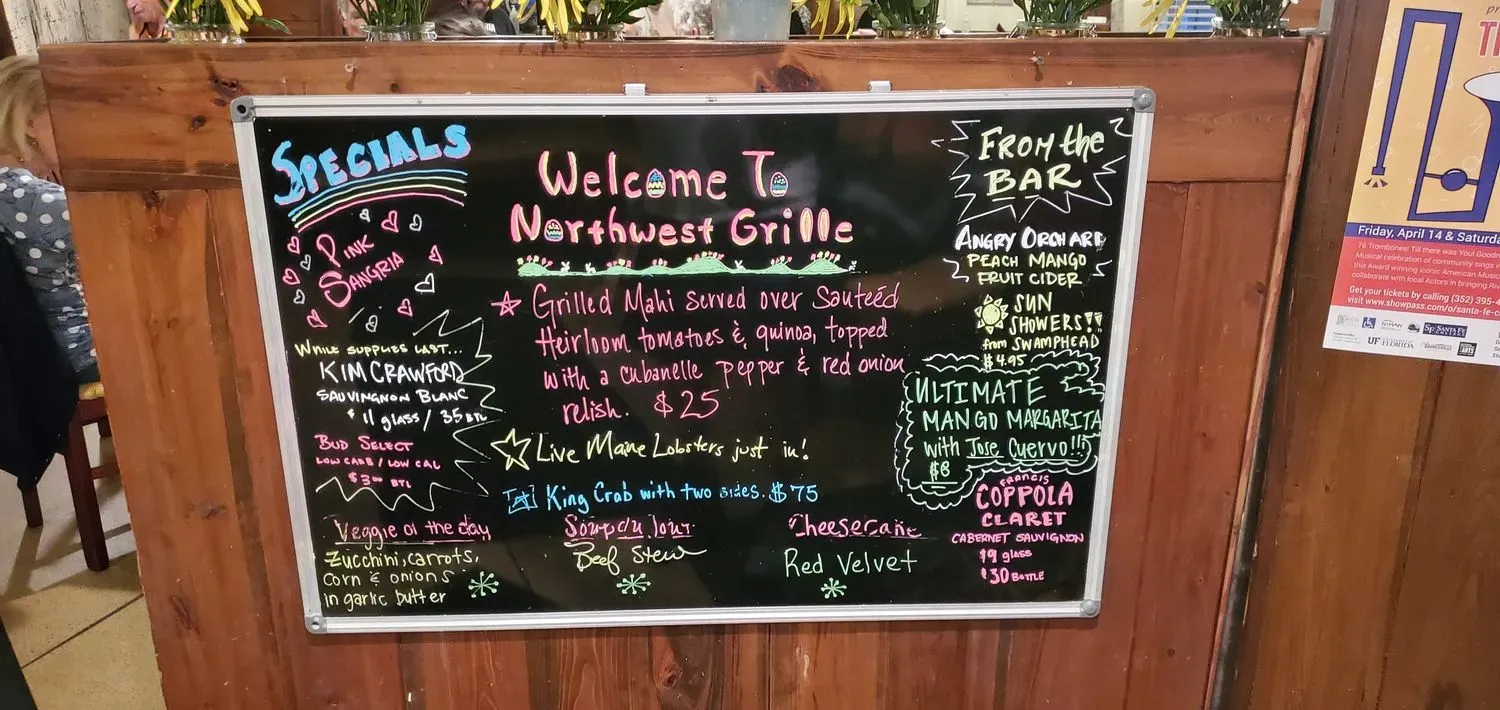 SPECIALS
PINK
SANGRIA
WHILE SUPPLIES LAST...
KIM CRAWFORD
SAUVINGNON BLANC
$11 glass / 35 BTL
BUD SELECT
LOW CARB / LOW CAL
$3.00 BTL
Welcome To
Northwest Grille
Grilled Mahi served over Sauteéd
Heirloom tomatoes & quinoa, topped
with a cubanelle pepper & red onion
relish. $25
Live Maine Lobsters just in!
King Crab with two sides. $75
Veggie of the day
Zucchini, carrots,
corn & onions
in garlic butter
Soup du Jour
Beef Stew
Cheesecake
Red Velvet
FROM the
BAR
ANGRY ORCHARD
PEACH MANGO
FRUIT CIDER
SUN
SHOWERS!!
from SWAMPHEAD
$4.95
ULTIMATE
MANGO MARGARITA
with Jose Cuervo!!!
$8
FRANCIS
COPPOLA
CLARET
CABERNET SAUVIGNON
$9 glass
$30 BOTTLE
Friday, April 14 & Saturda
76 Trombones! Till there was You! Goodn
Musical celebration of community sings i
this Award winning iconic American Music
collaborate with local Actors in bringing Riv
Get your tickets by calling (352) 395-4
visit www.showpass.com/o/santa-fe-c
SF SANTA FE
UF UNIVERSITY of FLORIDA